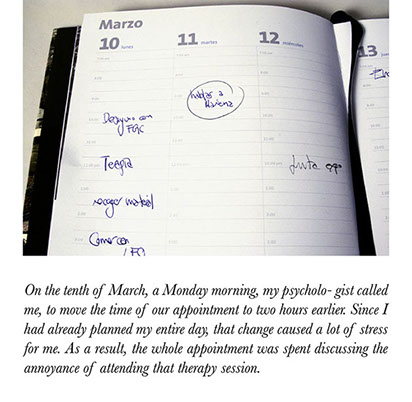 Marzo
10 lunes
11 martes
12 miércoles
13
Desayuno con
FGC
Terapia
recoger material
Comer con
FG
hablar a
Junta
On the tenth of March, a Monday morning, my psycholo- gist called
me, to move the time of our appointment to two hours earlier. Since I
had already planned my entire day, that change caused a lot of stress
for me. As a result, the whole appointment was spent discussing the
annoyance of attending that therapy session.